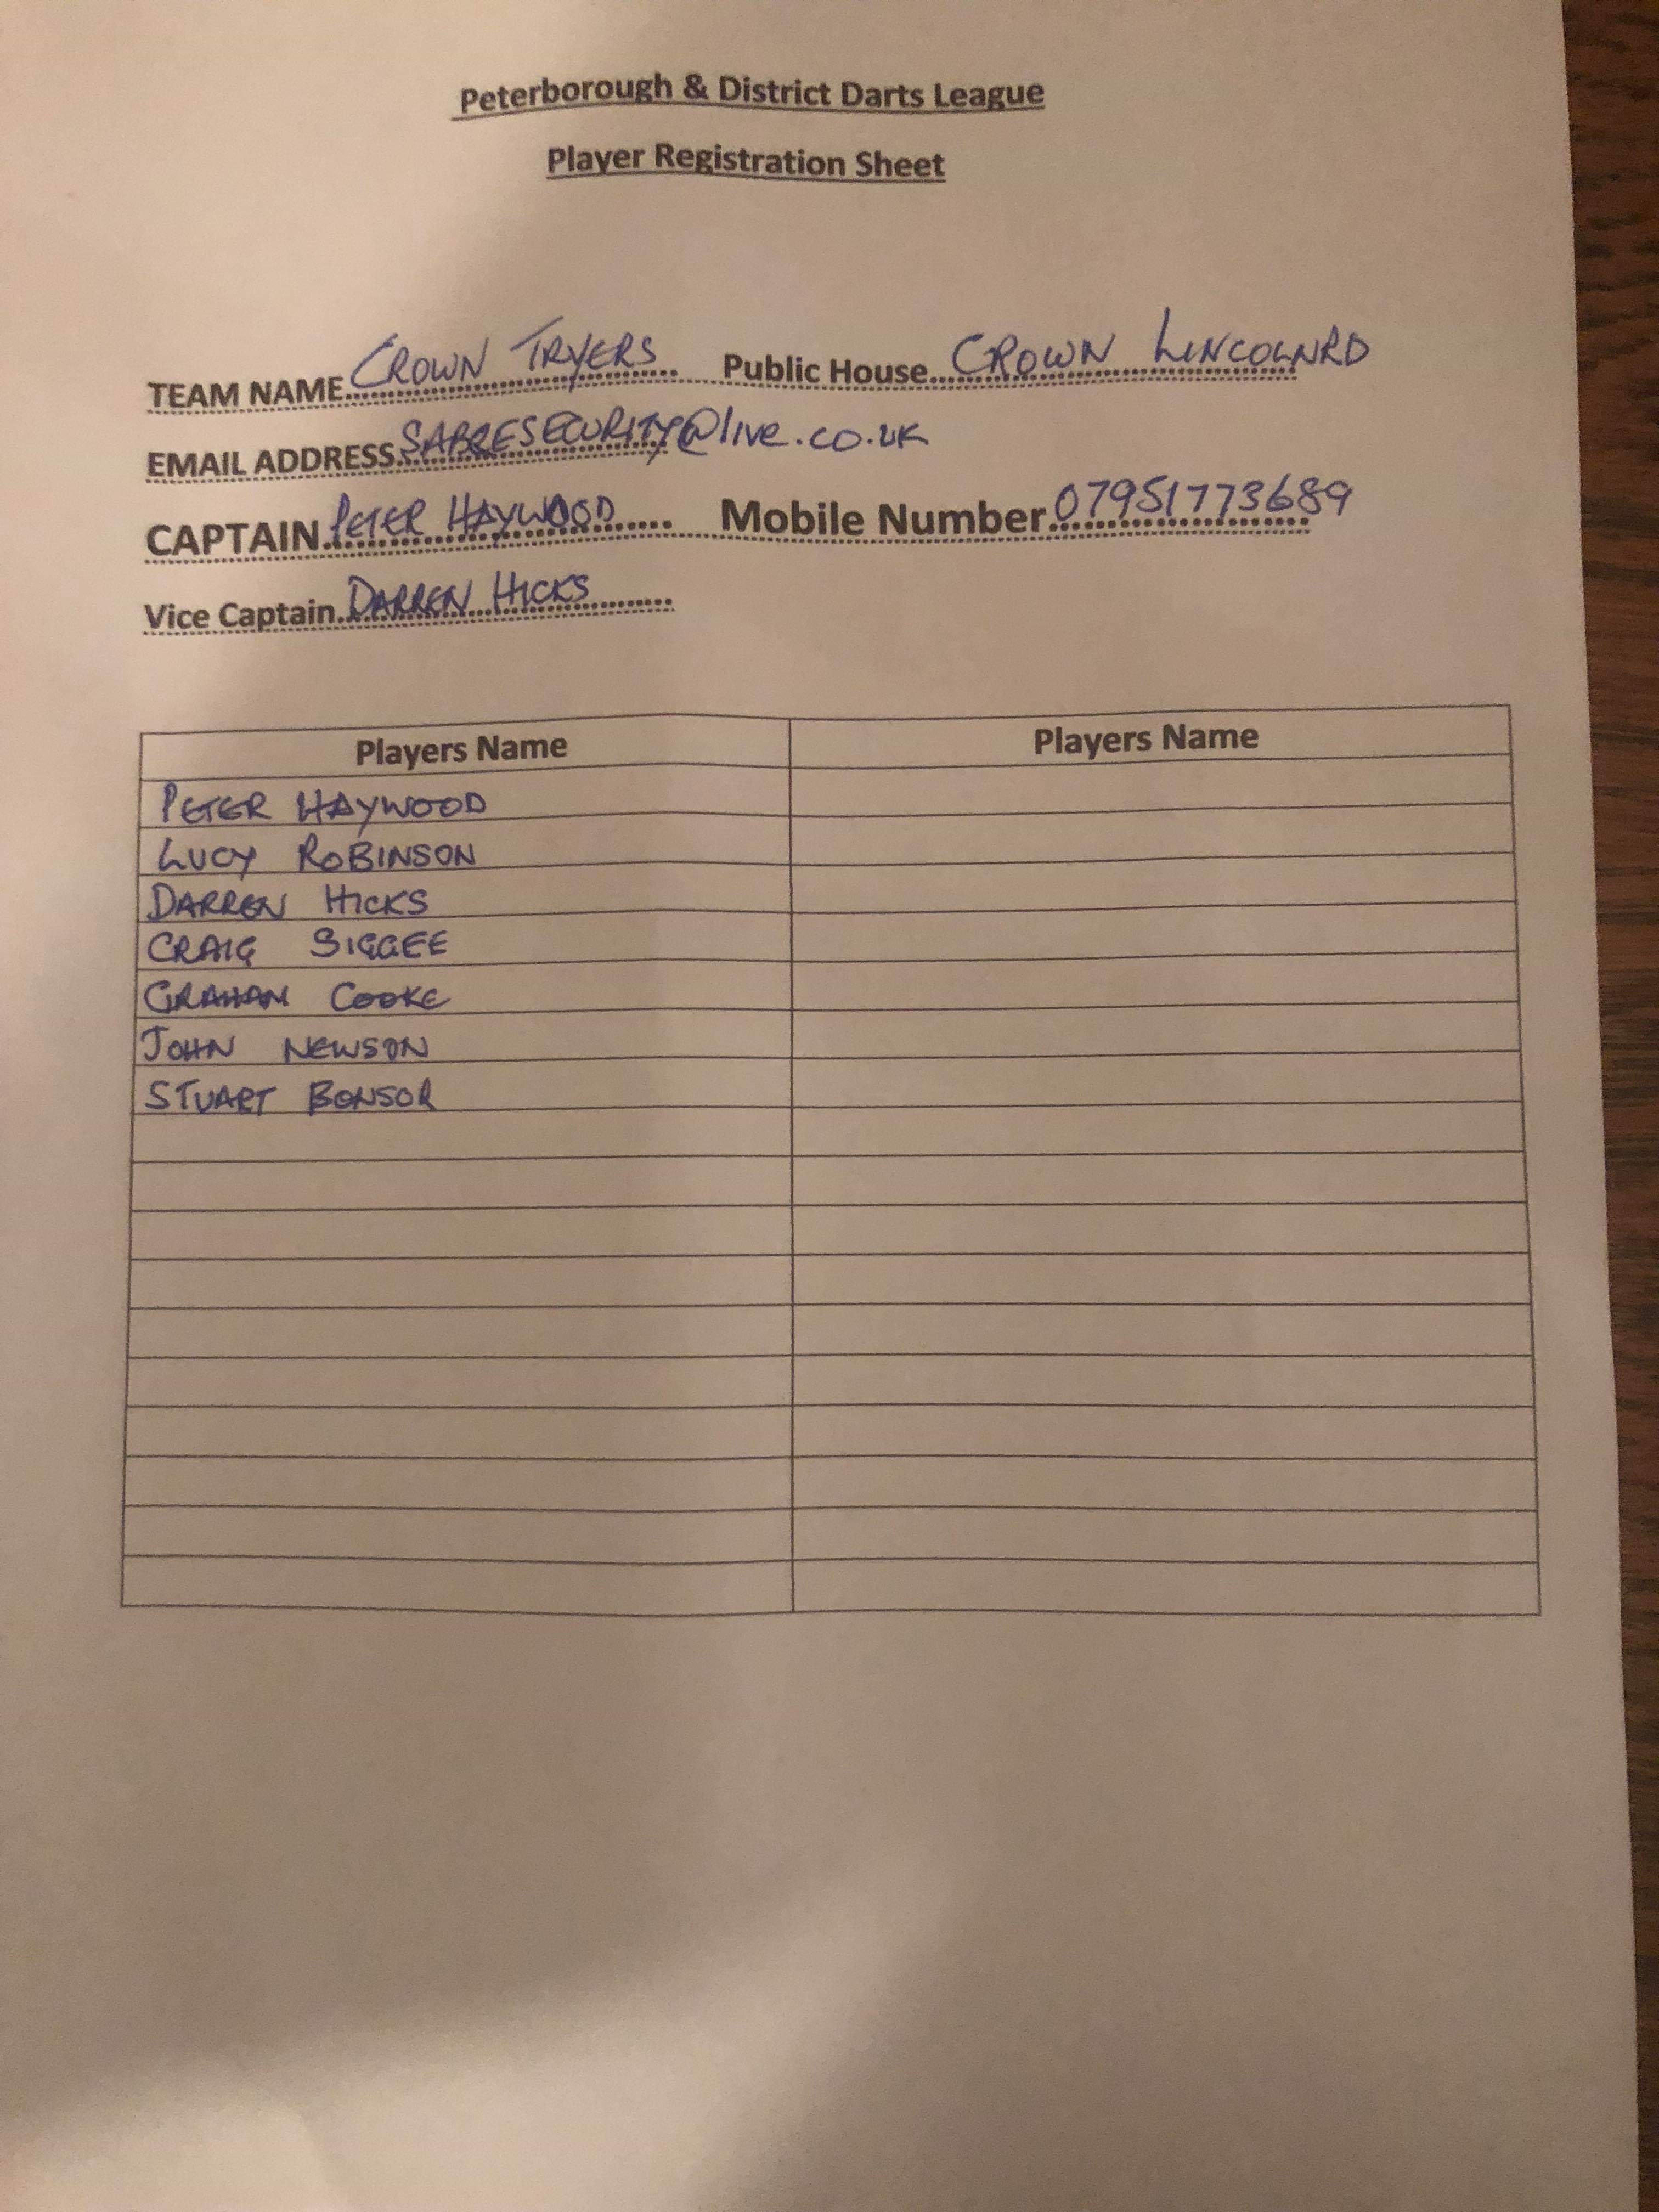 Peterborough & District Darts League
Player Registration Sheet
TEAM NAME CROWN TRYERS Public House CROWN LINCOLN RD
EMAIL ADDRESS SABRESECURITY@live.co.uk
CAPTAIN PETER HAYWOOD Mobile Number 07951773689
Vice Captain DARREN HICKS
Players Name Players Name
PETER HAYWOOD
LUCY ROBINSON
DARREN HICKS
CRAIG SIGGEE
GRAHAM COOKE
JOHN NEWSON
STUART BONSOR